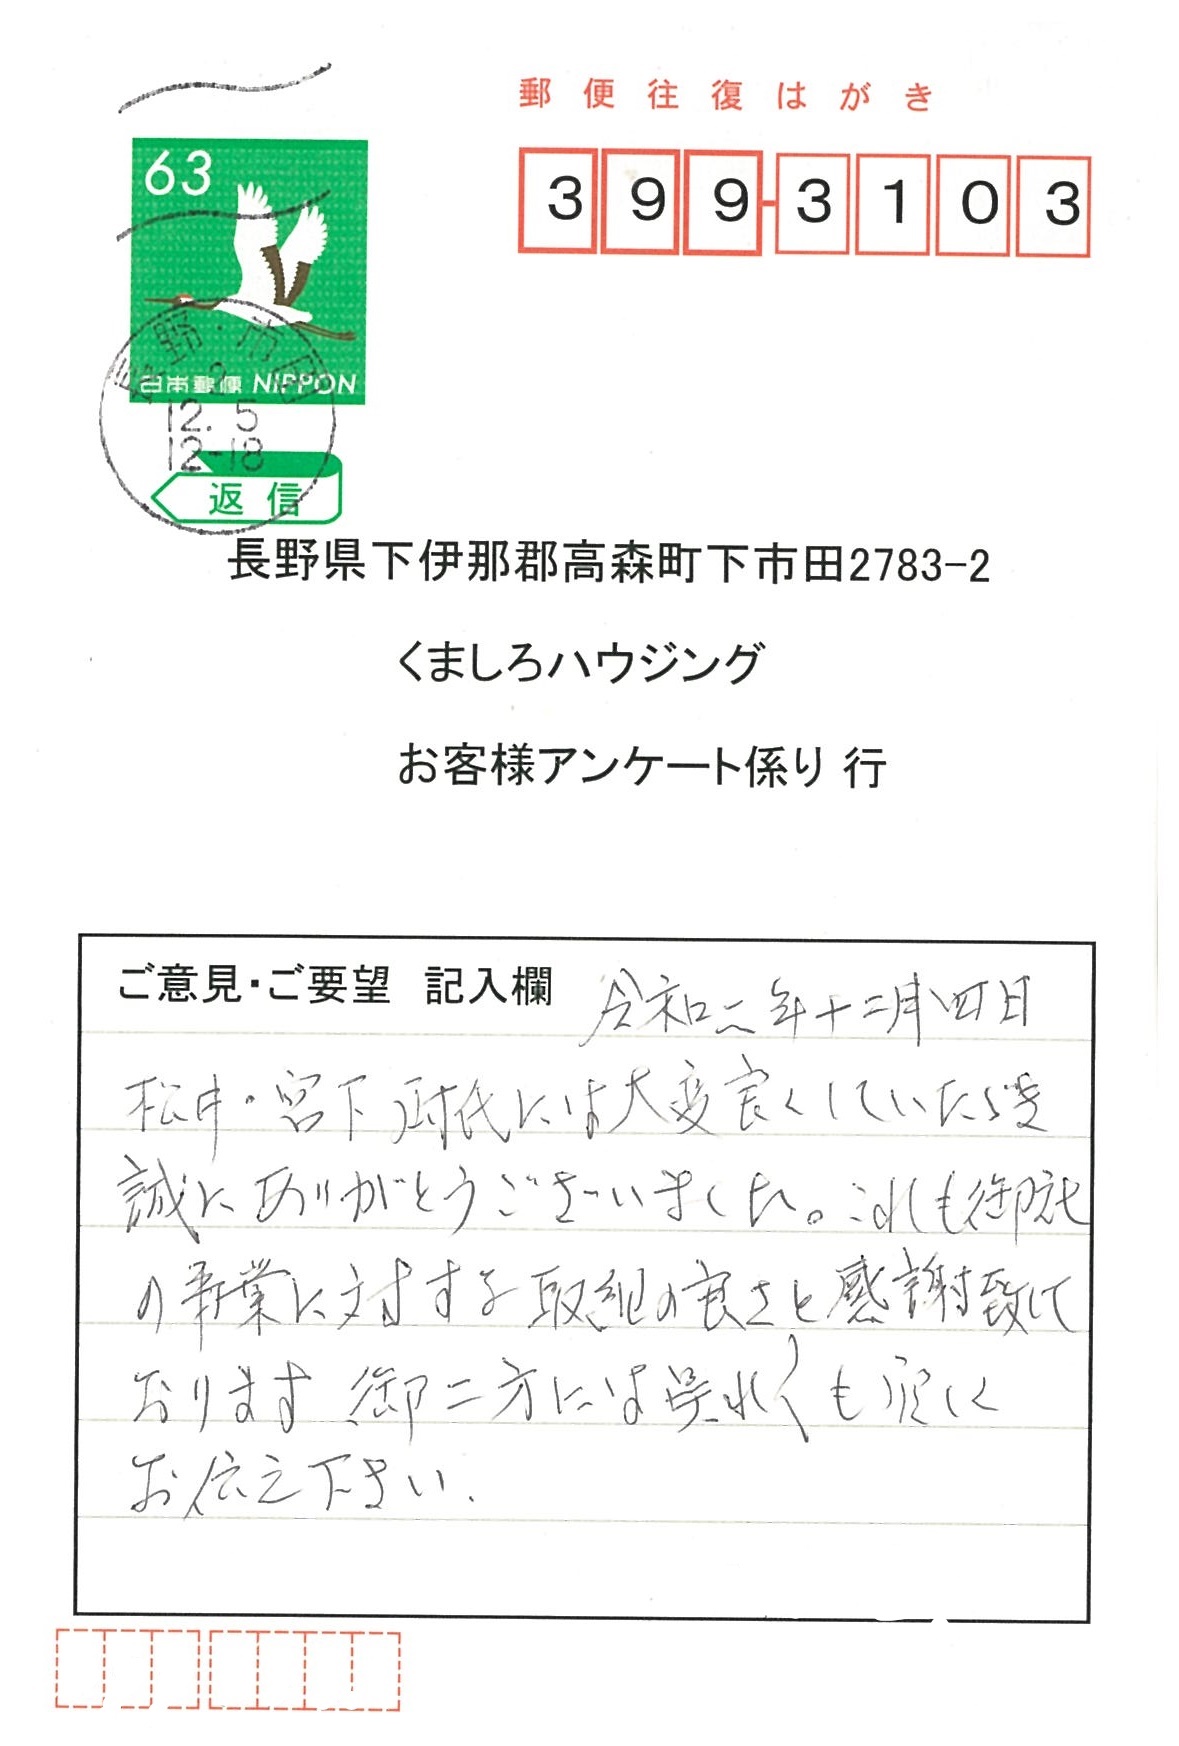 郵便往復はがき
63
399-3103
日本郵便 NIPPON
野・市田
2
12.5
12-18
返信
長野県下伊那郡高森町下市田2783-2
くましろハウジング
お客様アンケート係り 行
ご意見・ご要望 記入欄 令和二年十二月四日
松中・宮下両氏には大変良くしていただき
誠にありがとうございました。これも御社
の事業に対する取組の良さと感謝致して
おります 御二方には呉れ〱も宜しく
お伝え下さい.